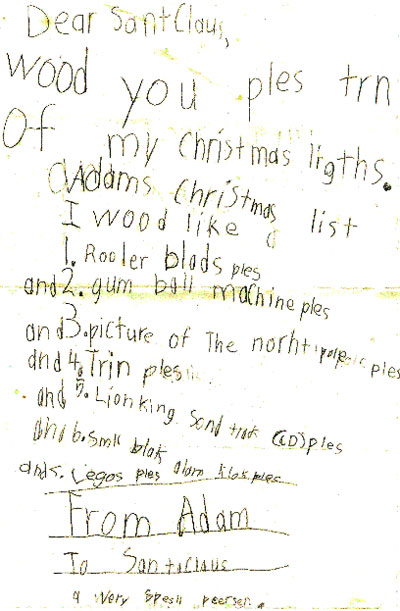 Dear SantClaus,
Wood you ples trn
Of my Christmas ligths.
Adams Christmas list
I wood like
1. Rooler blads ples
and 2. gum ball machine ples
and 3. picture of The north ples
and 4. Trin ples
and 5. Lion king Sond trak (CD) ples
and 6. Smk blak
and 5. Legos ples alarm klok ples
From Adam
To SantaClaus
a very spesh peersen.